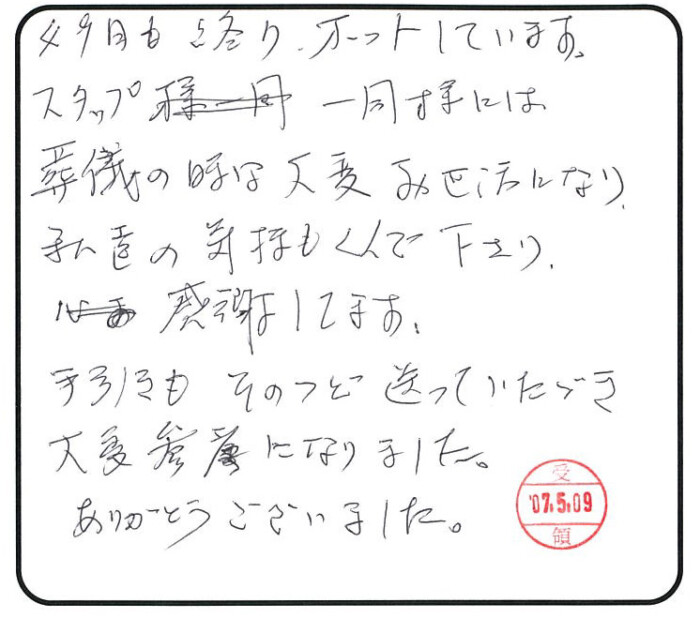 49日も終り、ホットしています。
スタップ様一同 一同様には
葬儀の時は大変お世話になり、
私達の気持もくんで下さり、
感謝してます。
手引きもそのつど送っていただき
大変参考になりました。
ありがとうございました。
受
'07.5.09
領